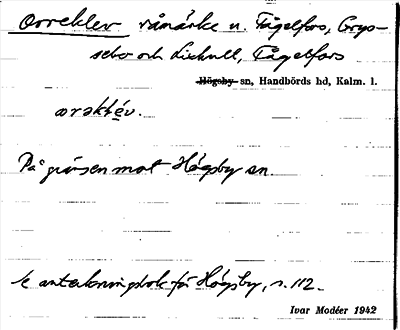 Orreklev råmärke n. Fågelfors, Grys-
sebo och Lixhult, Fågelfors
Högsby sn, Handbörds hd, Kalm. l.
På gränsen mot Högsby sn.
Se anteckningsbok för Högsby, s. 112.
Ivar Modéer 1942